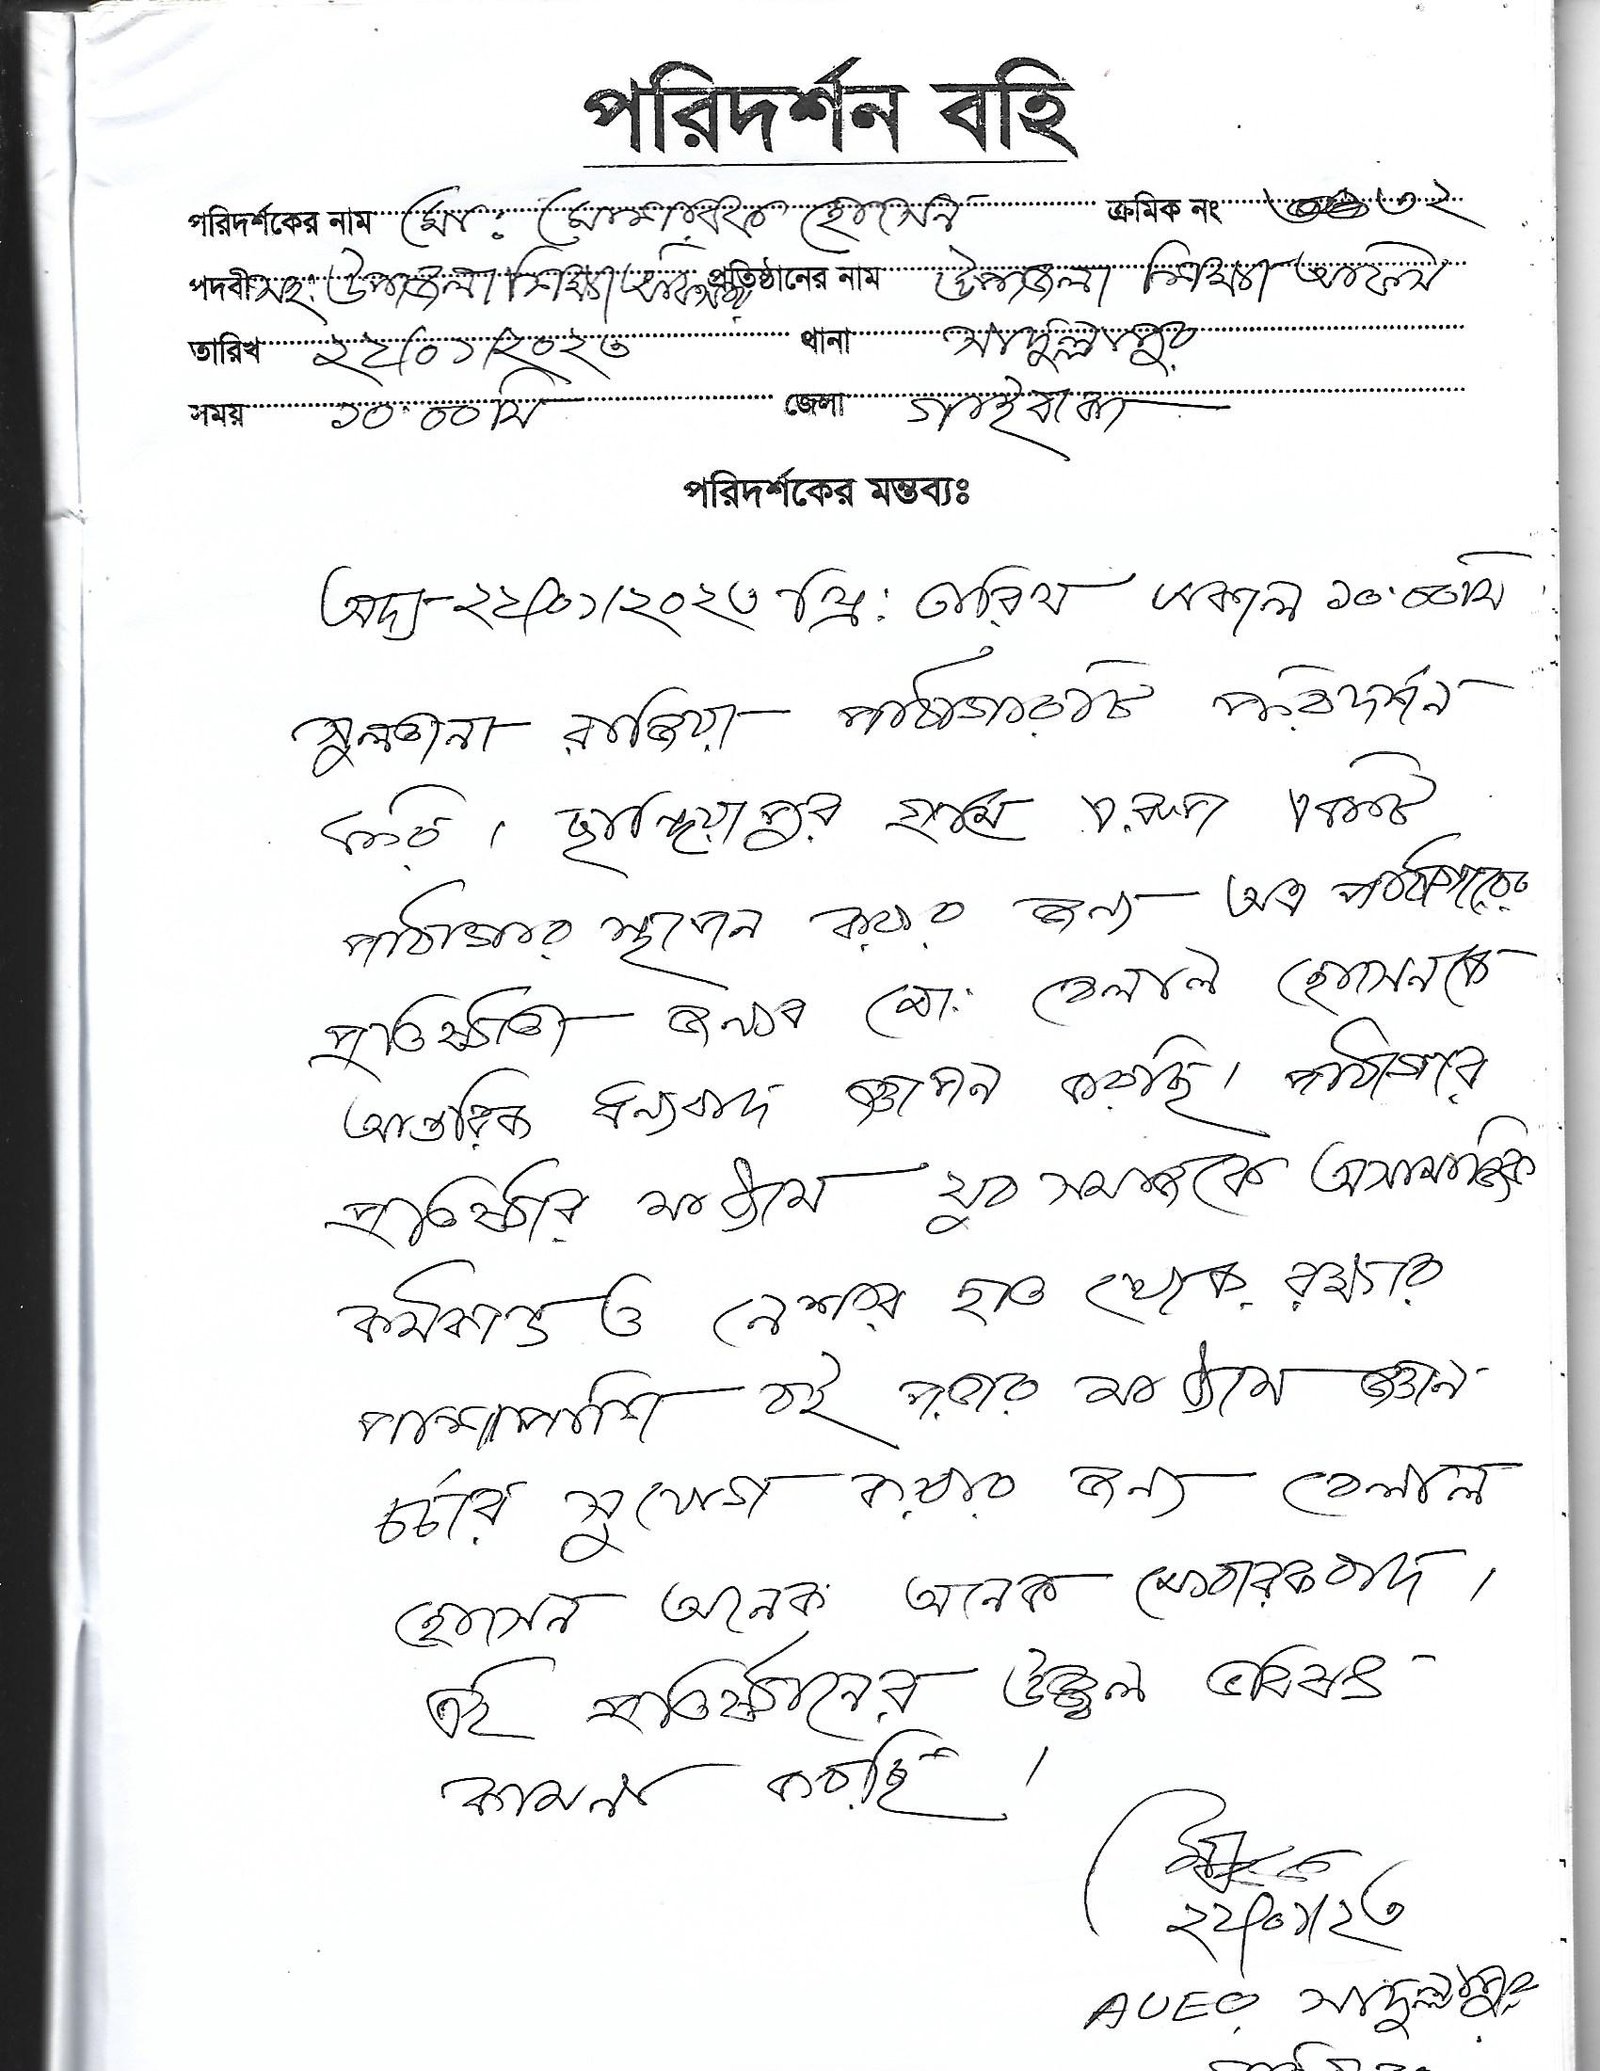 পরিদর্শন বহি
পরিদর্শকের নাম মো: মোশাররফ হোসেন ক্রমিক নং ৩২
পদবী সহ: উপজেলা শিক্ষা অফিসার প্রতিষ্ঠানের নাম উপজেলা শিক্ষা অফিস
তারিখ ২২/০১/২০২৩ থানা সাদুল্লাপুর
সময় ১০:০০মি জেলা গাইবান্ধা
পরিদর্শকের মন্তব্যঃ
অদ্য ২২/০১/২০২৩ খ্রি: তারিখ সকাল ১০:০০মি
সুলতানা রাজিয়া পাঠাগারটি পরিদর্শন
করি। গ্রামে এরূপ একটি
পাঠাগার স্থাপন করার জন্য অত্র পাঠাগারের
প্রতিষ্ঠাতা জনাব মো: বেলাল হোসেনকে
আন্তরিক ধন্যবাদ জ্ঞাপন করছি। পাঠাগার
প্রতিষ্ঠার মাধ্যমে যুব সমাজকে অসামাজিক
কর্মকান্ড ও নেশার হাত থেকে রক্ষার
পাশাপাশি বই পড়ার মাধ্যমে জ্ঞান
চর্চার সুযোগ করার জন্য বেলাল
হোসেন অনেক অনেক মোবারকবাদ।
এই প্রতিষ্ঠানের উজ্জ্বল ভবিষৎ
কামনা করছি।
২২/০১/২৩
AUEO, সাদুল্লাপুর